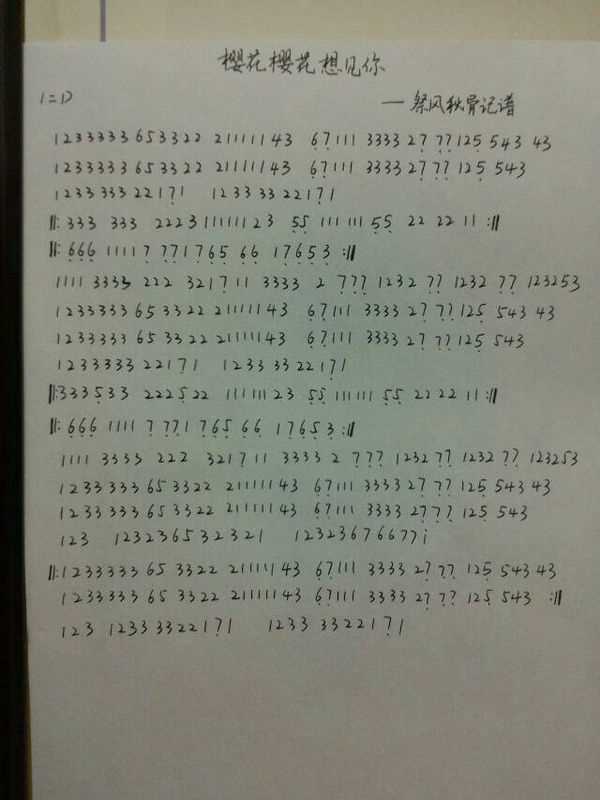 樱花樱花想见你
1=D
—祭风秋骨记谱
1233333 653322 21111143 67111 3333 27 77 125 543 43
1233333 653322 21111143 67111 3333 27 77 125 543
1233 333 22171 1233 33 22171
‖: 333 333 2223 11111123 55 111 111 55 22 22 11 :‖
‖: 666 1111 7 771765 66 17653 :‖
1111 3333 222 321711 3333 2 777 1232 77 1232 77 123253
1233333 65 3322 21111143 67111 3333 27 77 125 543 43
1233333 65 3322 21111143 67111 3333 27 77 125 543
1233333 22171 1233 33 22171
‖:333533 222522 11111123 55 111111 55 22 22 11 :‖
‖: 666 1111 7 771 765 66 17653 :‖
1111 3333 222 3217 11 3333 2 777 1232 77 1232 77 123253
1233333 65 3322 21111143 67111 3333 27 77 125 543 43
1233333 65 3322 21111143 67111 3333 27 77 125 543
123 123236532321 123236766771
‖:1233333 65 3322 21111143 67111 3333 27 77 125 543 43
1233333 65 3322 21111143 67111 3333 27 77 125 543 :‖
123 1233 3322171 1233 3322171